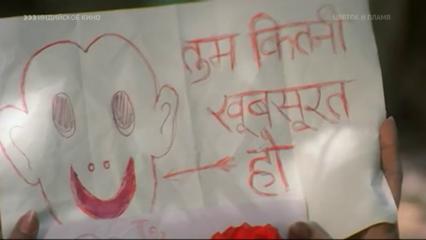 ƎƎƎ ИНДИЙСКОЕ КИНО
ЦВЕТОК И ПЛАМЯ
तुम कितनी
खूबसूरत
हो